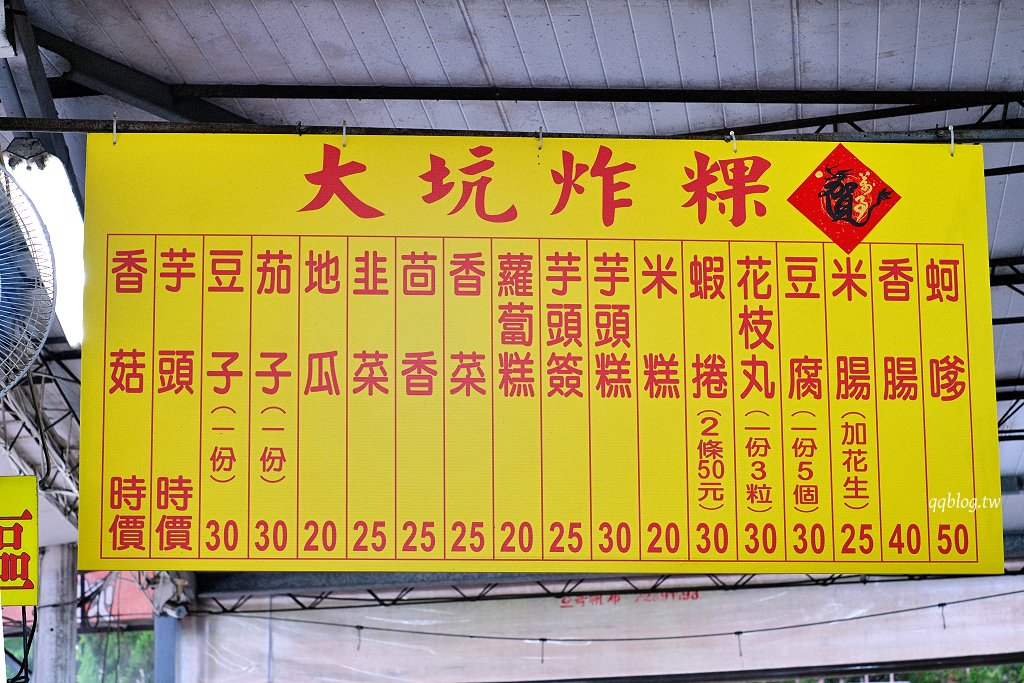 大坑炸粿
賀
蚵嗲 50
香腸 40
米腸(加花生) 25
豆腐(一份5個) 30
花枝丸(一份3粒) 30
蝦捲(2條50元) 30
米糕 20
芋頭糕 30
芋頭簽 25
蘿蔔糕 20
香菜 25
茴香 25
韭菜 25
地瓜 20
茄子(一份) 30
豆子(一份) 30
芋頭 時價
香菇 時價
qqblog.tw